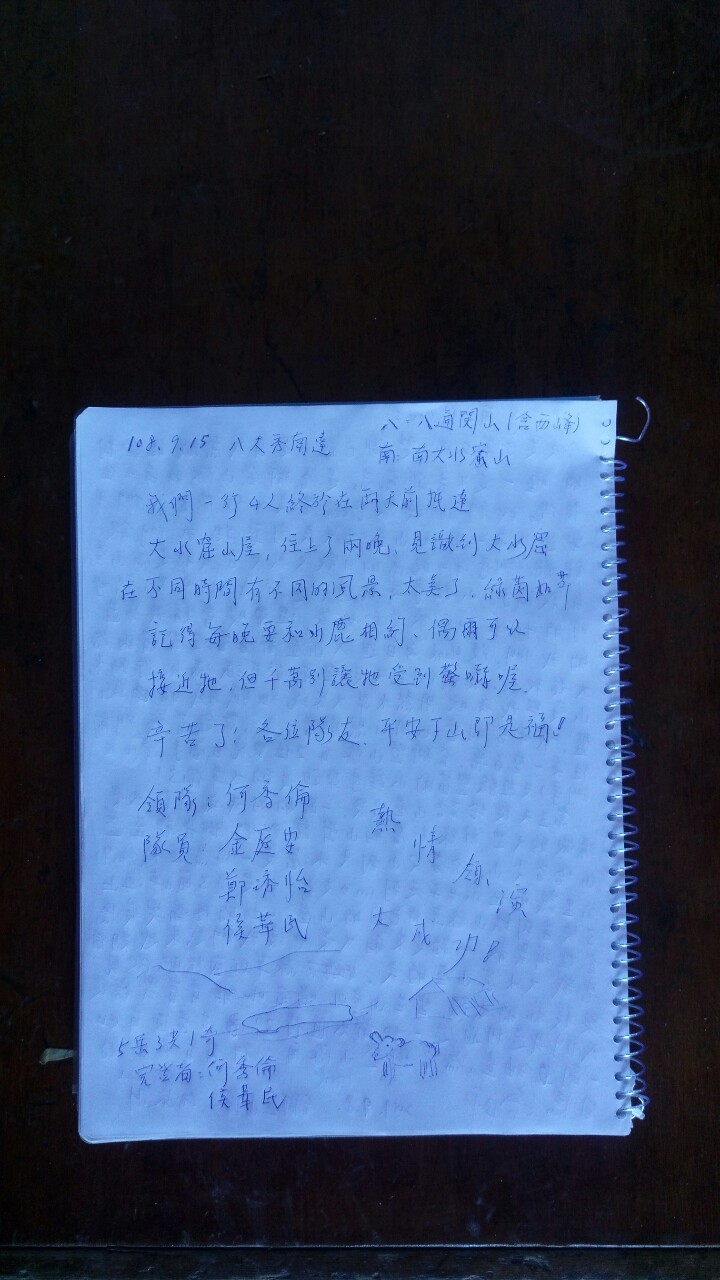 108.9.15 八大秀南達
八:八通関山(含西峰)
南:南大水窟山
我們一行4人終於在兩天前抵達
大水窟山屋,住上了兩晚,見識到大水窟
在不同時間有不同的風景,太美了,綠茵如
記得每晚要和水鹿相約、偶爾可以
接近牠,但千萬別讓牠受到驚嚇喔.
辛苦了!各位隊友,平安下山即是福!!
領隊:何秀倫
隊員:金庭安
鄭琇怡
侯華民
熱情領演
大成功!
完登者:何秀倫
侯華民